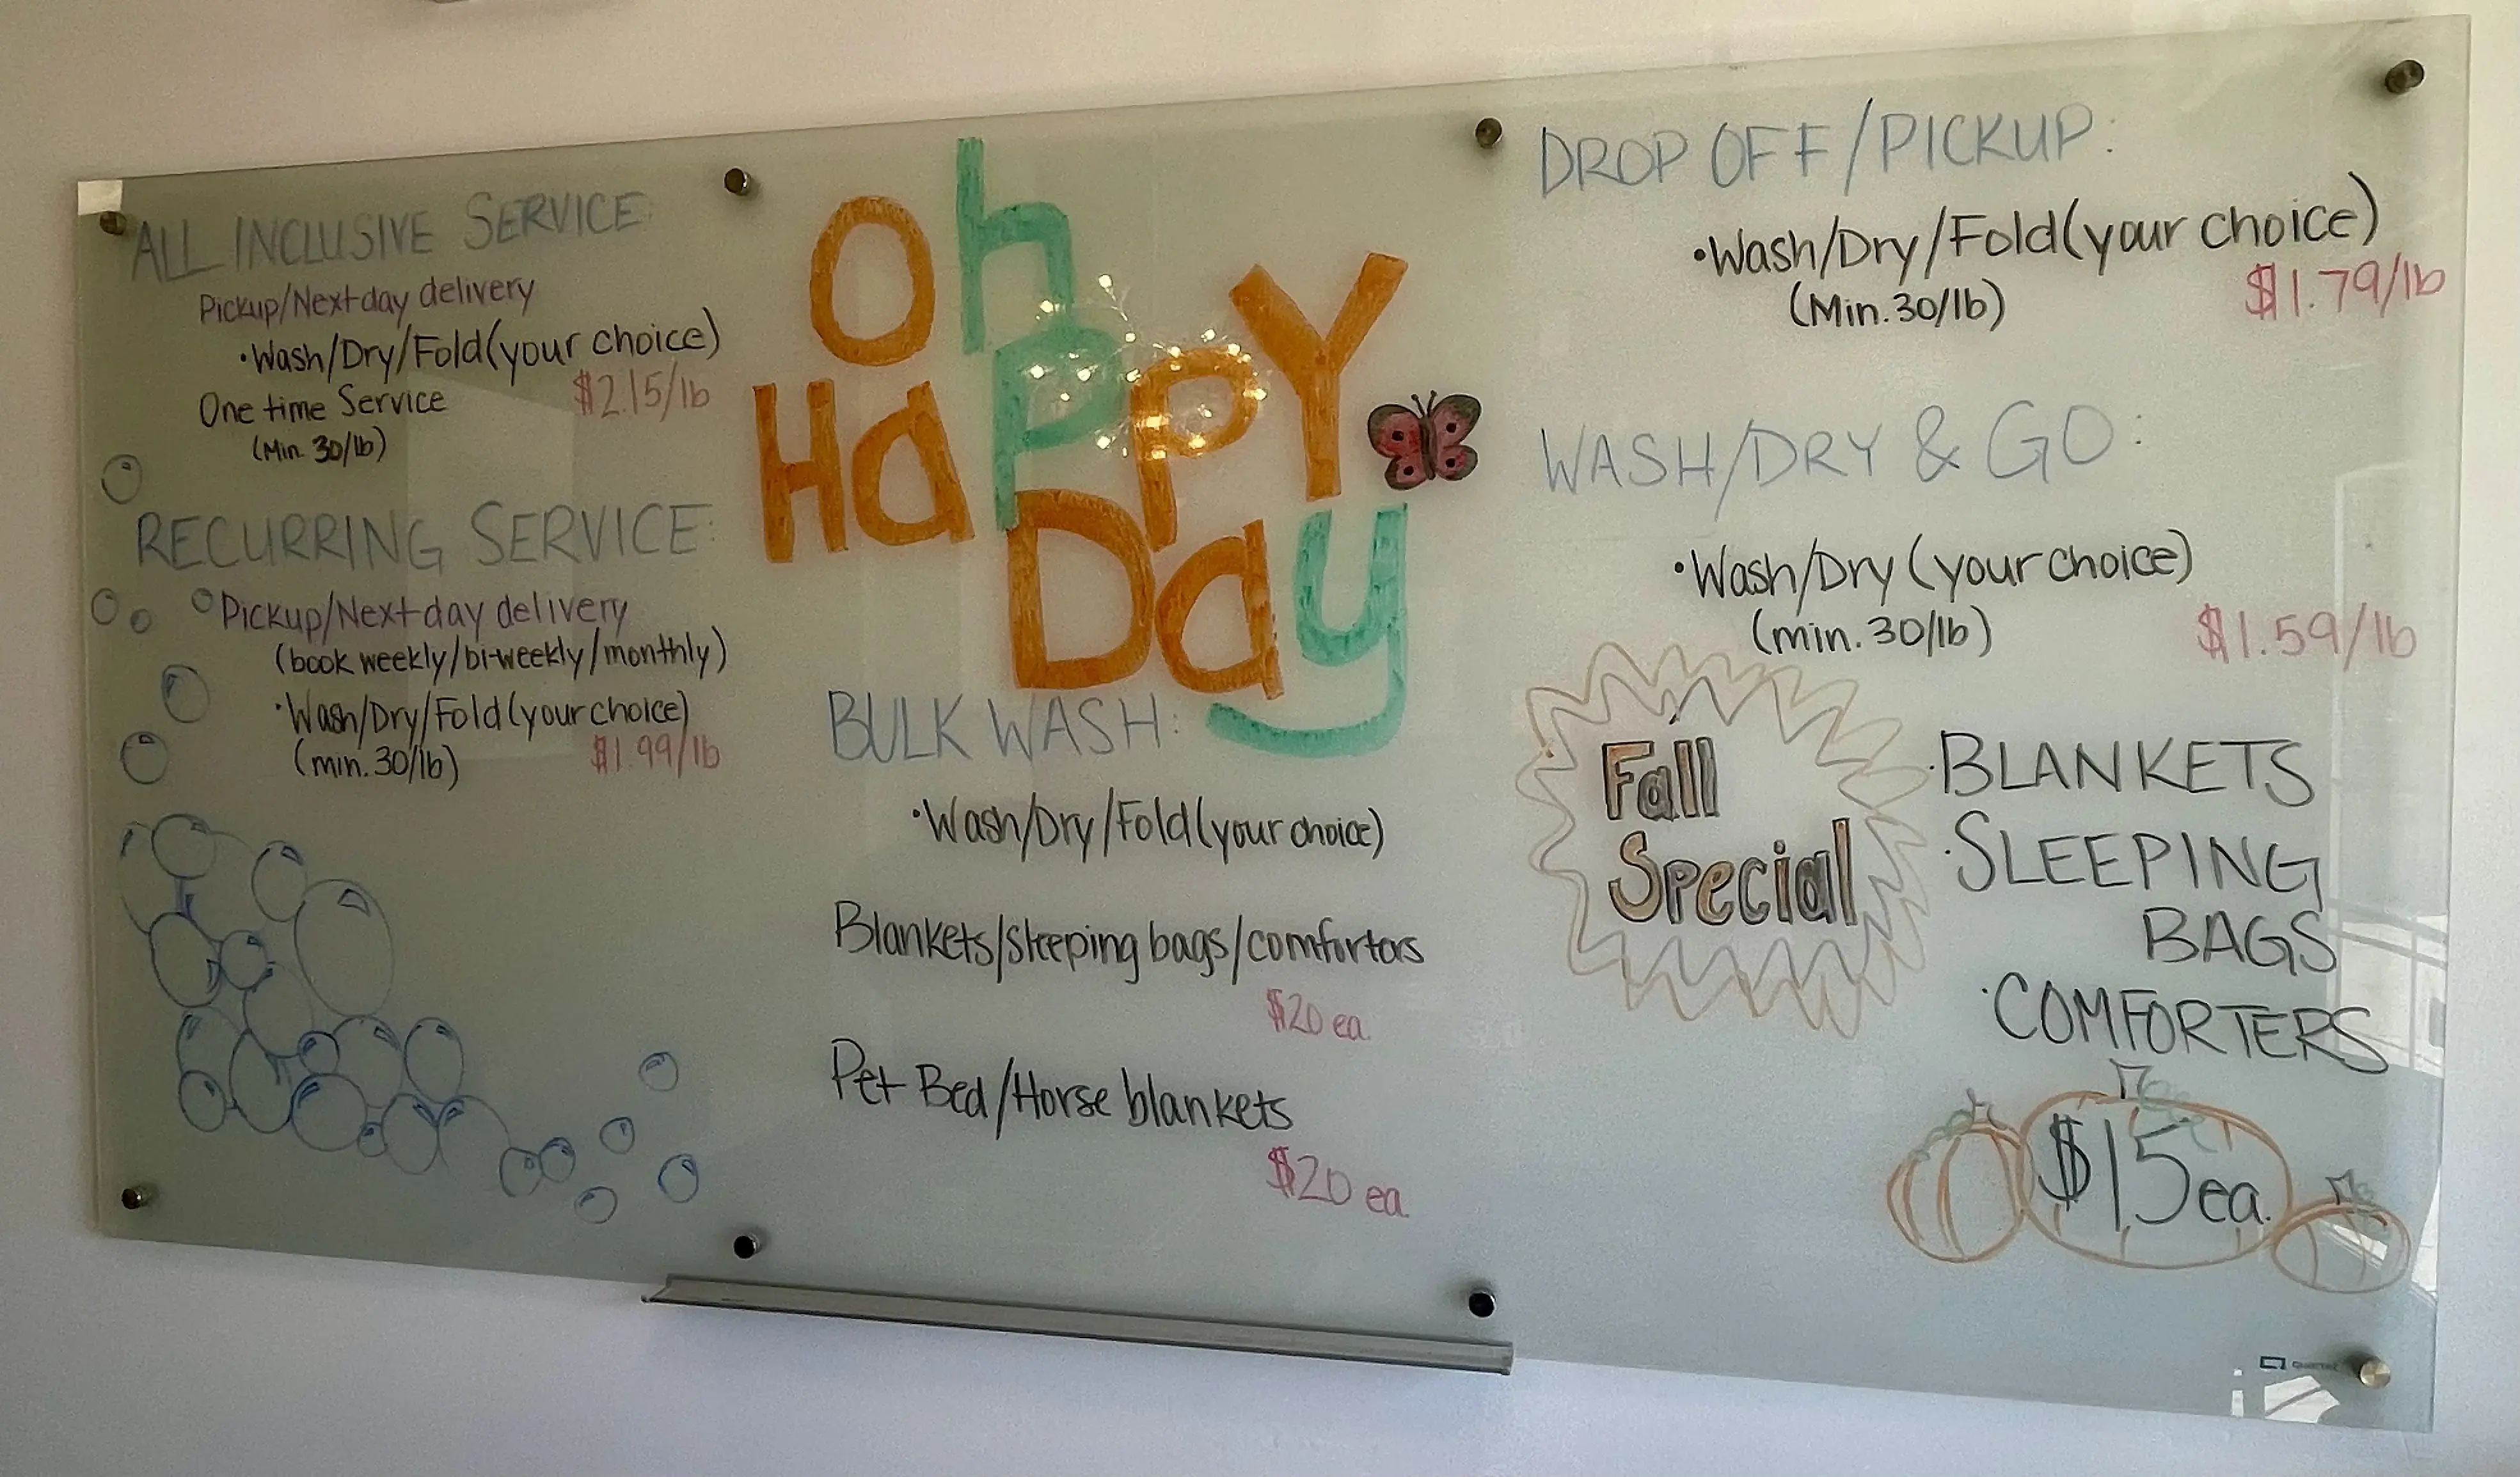 ALL INCLUSIVE SERVICE:
Pickup/Next day delivery
•Wash/Dry/Fold(your choice)
One time Service $2.15/lb
(Min. 30/lb)
RECURRING SERVICE:
Pickup/Next day delivery
(book weekly/bi-weekly/monthly)
•Wash/Dry/Fold(your choice)
(min. 30/lb) $1.99/lb
Oh
HaPPY
Day
BULK WASH:
•Wash/Dry/Fold(your choice)
Blankets/sleeping bags/comforters
$20 ea.
Pet Bed/Horse blankets
$20 ea.
DROP OFF/PICKUP:
•Wash/Dry/Fold(your choice)
(Min. 30/lb) $1.79/lb
WASH/DRY & GO:
•Wash/Dry (your choice)
(min. 30/lb) $1.59/lb
Fall
Special
•BLANKETS
•SLEEPING
BAGS
•COMFORTERS
$15 ea.